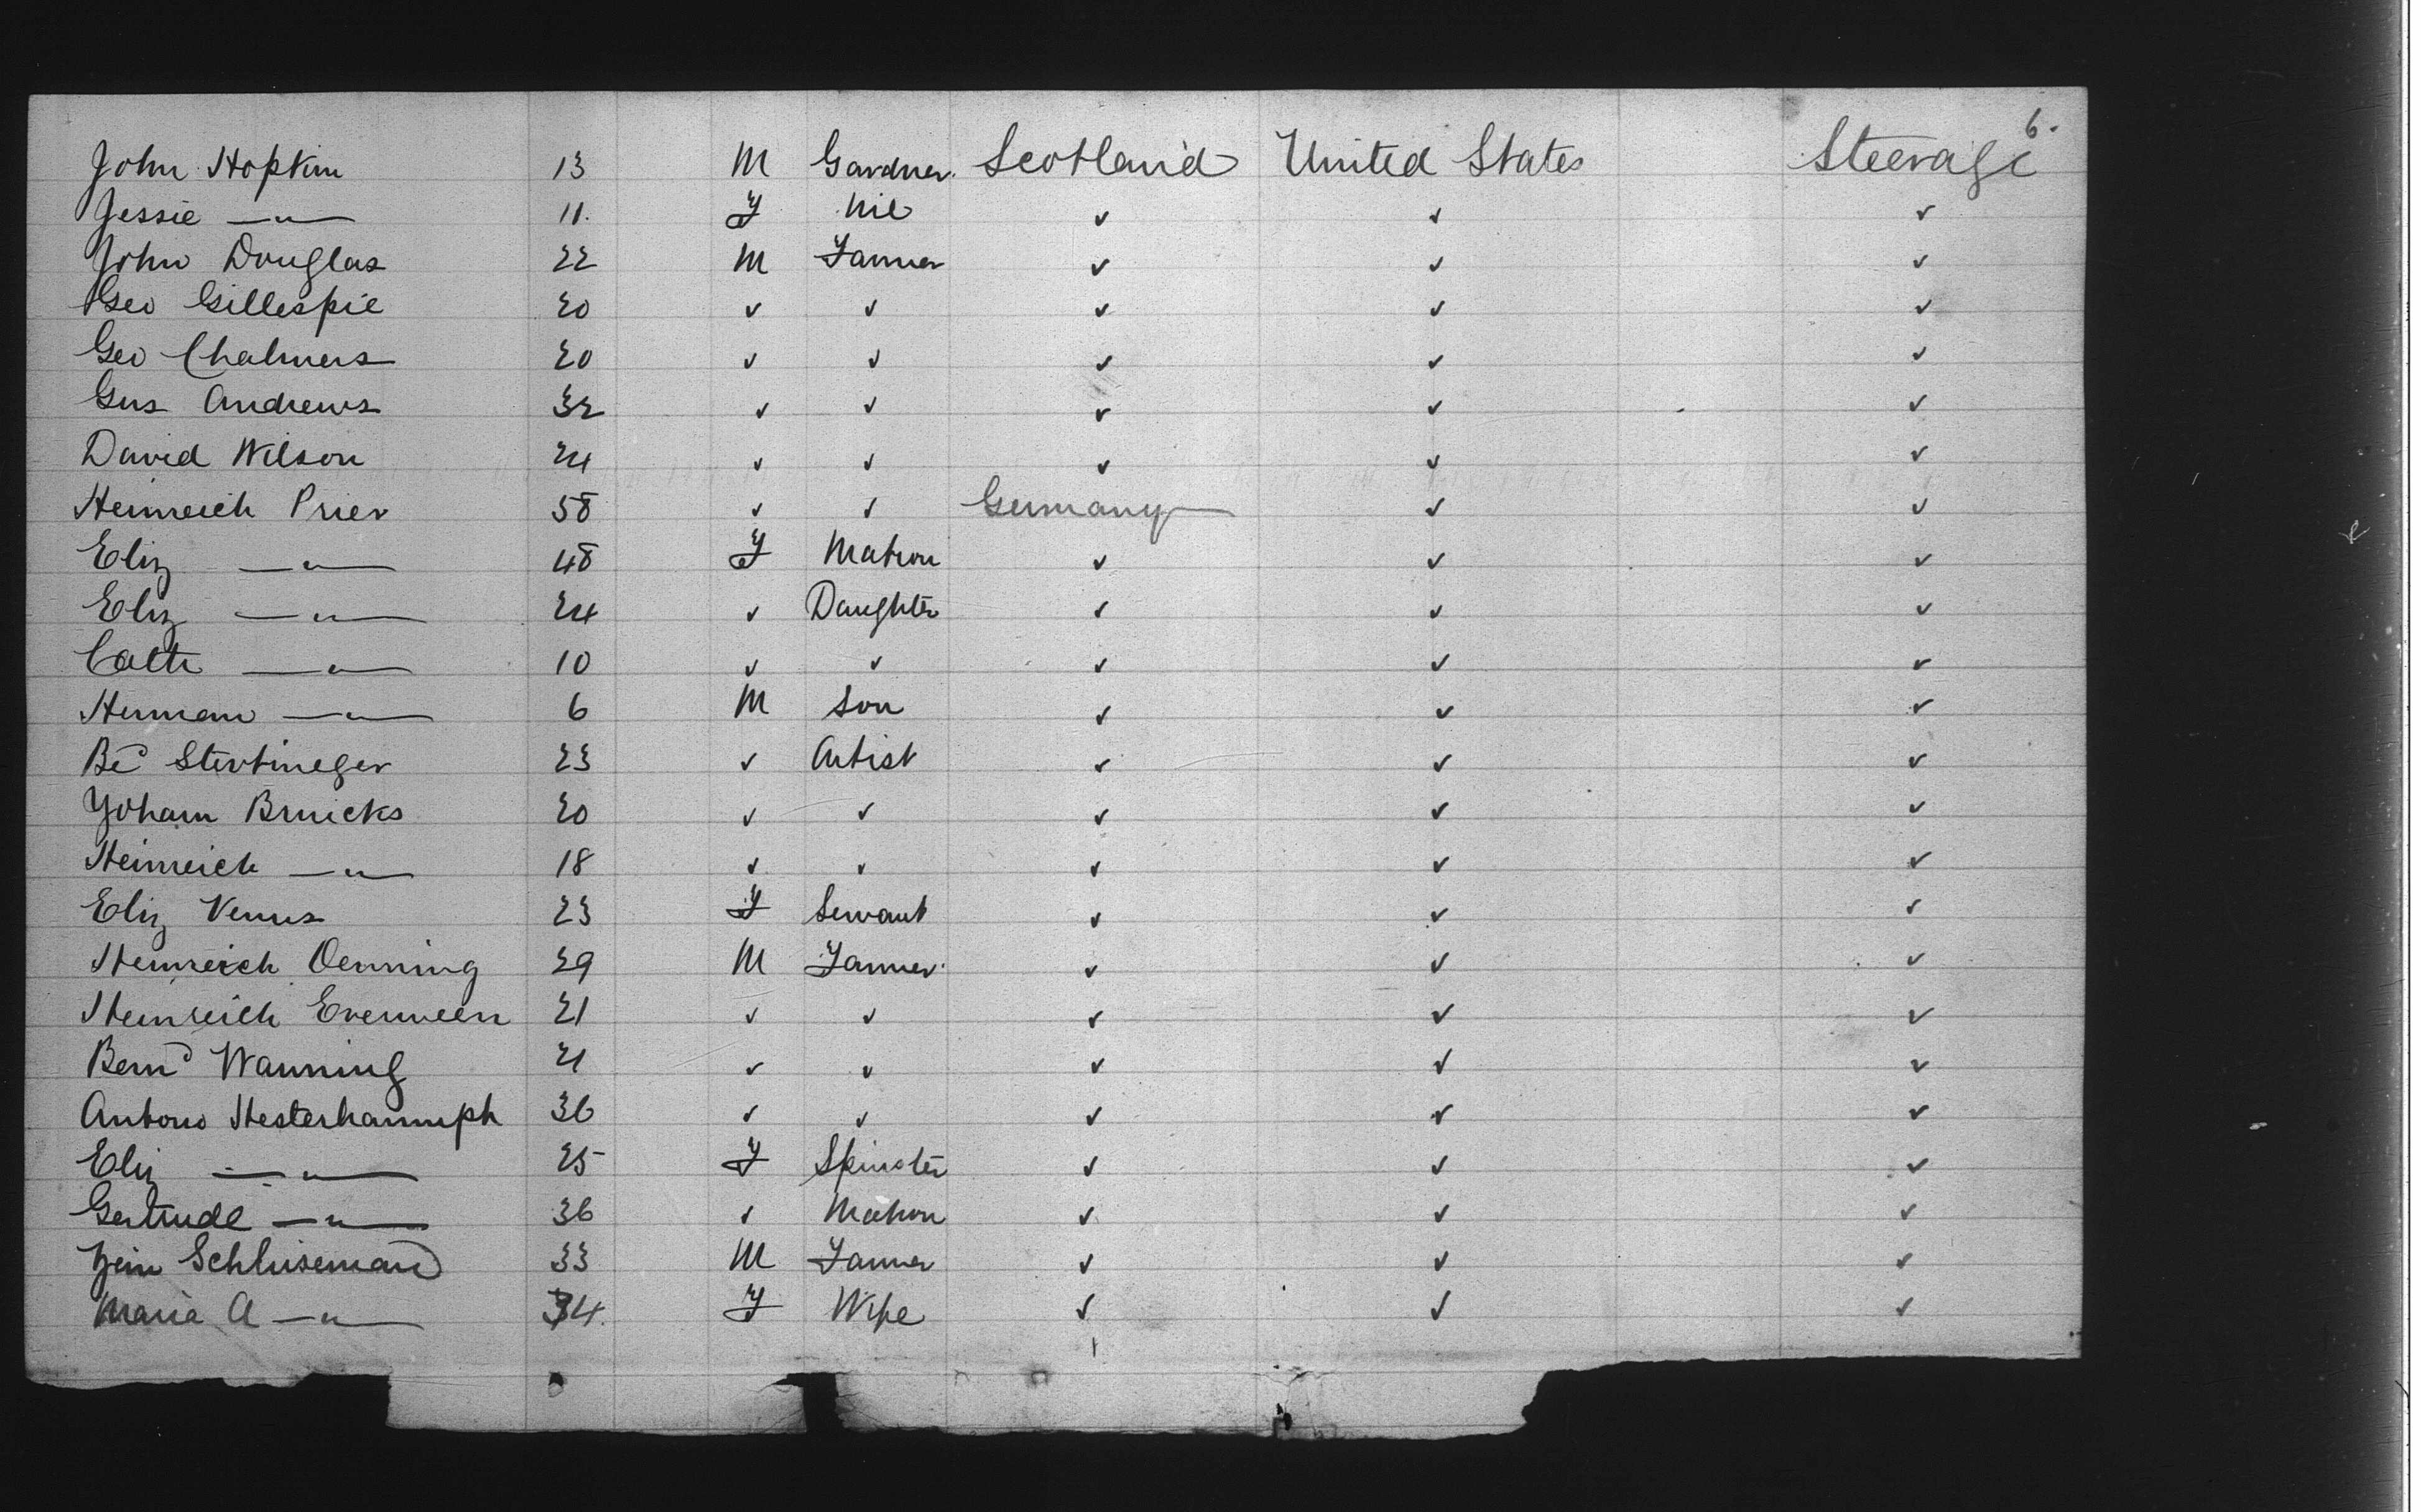 6.
John Hopkin 13 M Gardner. Scotland United States Steerage
Jessie —"— 11. F Nil ✓ ✓ ✓
John Douglas 22 M Farmer ✓ ✓ ✓
Geo Gillespie 20 ✓ ✓ ✓ ✓ ✓
Geo Chalmers 20 ✓ ✓ ✓ ✓ ✓
Gus Andrews 32 ✓ ✓ ✓ ✓ ✓
David Wilson 24 ✓ ✓ ✓ ✓ ✓
Heinreich Prier 58 ✓ ✓ Germany ✓ ✓
Eliz —"— 48 F Matron ✓ ✓ ✓
Eliz —"— 24 ✓ Daughter ✓ ✓ ✓
Cath —"— 10 ✓ ✓ ✓ ✓ ✓
Herman —"— 6 M Son ✓ ✓ ✓
Bd Stertineger 23 ✓ Artist ✓ ✓ ✓
Yoham Bruicks 20 ✓ ✓ ✓ ✓ ✓
Heinreich —"— 18 ✓ ✓ ✓ ✓ ✓
Eliz Venus 23 F Servant ✓ ✓ ✓
Heinreich Oenning 29 M Farmer ✓ ✓ ✓
Heinreich Everween 21 ✓ ✓ ✓ ✓ ✓
Bernd Wanning 21 ✓ ✓ ✓ ✓ ✓
Antons Hesterhannmph 36 ✓ ✓ ✓ ✓ ✓
Eliz —"— 25 F Spinster ✓ ✓ ✓
Gertrude —"— 36 ✓ Matron ✓ ✓ ✓
Schluseman 33 M Farmer ✓ ✓ ✓
Maria A —"— 34. F Wife ✓ ✓ ✓